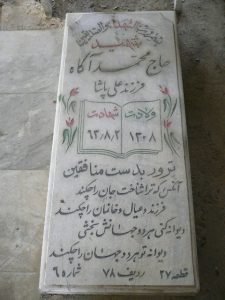 شهید
حاج محمد آگاه
فرزند علی پاشا
ولادت شهادت
۱۳۰۸ ۶۲/۸/۲
ترور بدست منافقین
آنکس که تو را شناخت جان را چکند
فرزند و عیال و خانمان را چکند
دیوانه کنی هر دو جهانش بخشی
دیوانه تو هر دو جهان را چکند
قطعه ۲۷ ردیف ۷۸ شماره ۶